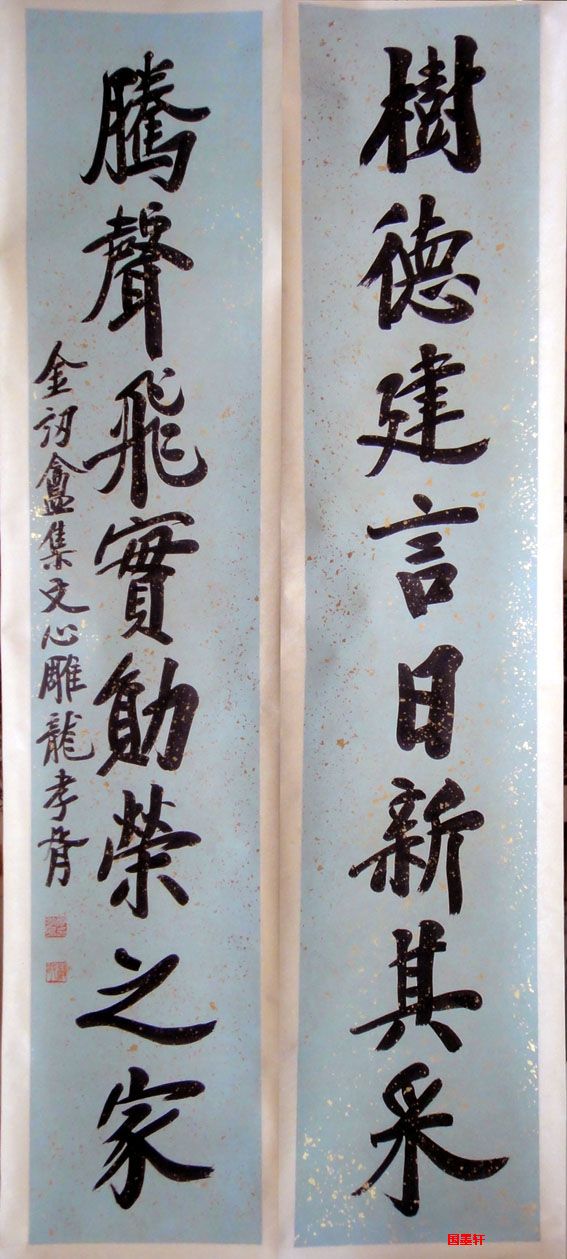 樹德建言日新其采
騰聲飛實勛榮之家
金訒盦集文心雕龍孝胥
国美轩